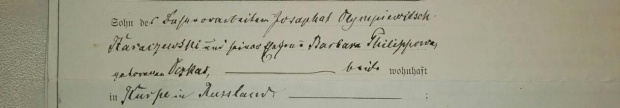 Sohn des Josaphat Olympiewitsch
Karaczewski und seiner Ehefrau Barbara Philippowna,
geborenen beide wohnhaft
in Kursk in Russland. ;